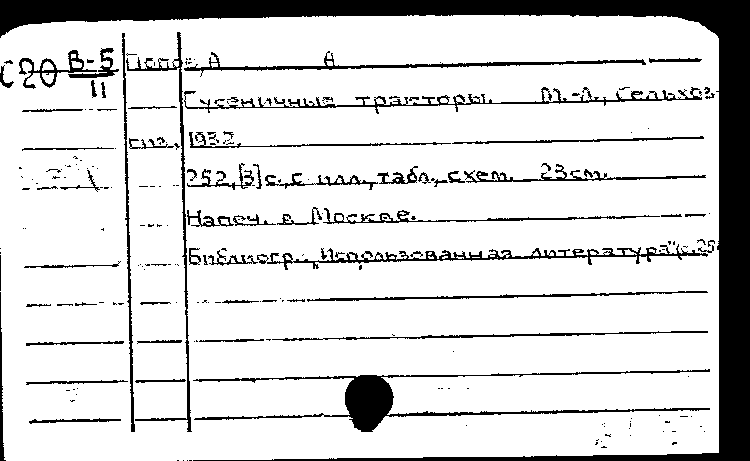 С20 В-5 Попов, А А
11
Гусеничные тракторы. М.-Л., Сельхоз-
гиз, 1932.
252, [3] с., с илл., табл., схем. 23 см.
Напеч. в Москве.
Библиогр.: "Использованная литература" (с. 25